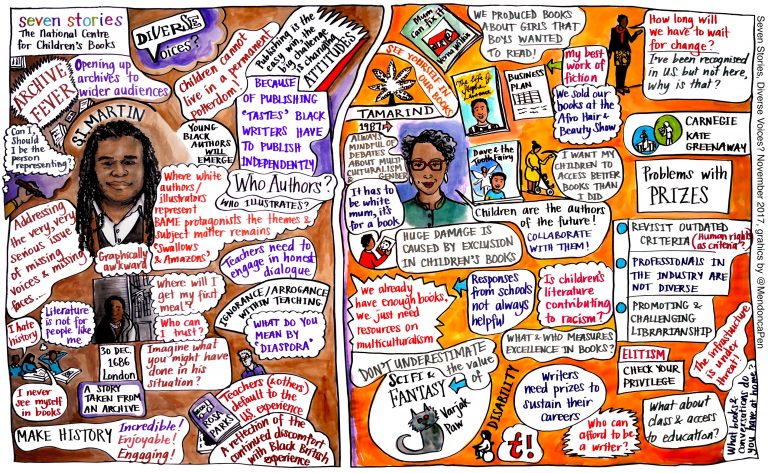 seven stories
The National Centre
for Children's Books
DIVERSE
VOICES?
Publishing is the
easy win, the
big challenge
is changing
ATTITUDES
ARCHIVE
FEVER
Opening up
archives to
wider audiences
Children cannot
live in a permanent
Potterdom!
S.I. MARTIN
Can I,
Should
I be the
person
representing?
YOUNG
BLACK
AUTHORS
WILL
EMERGE
BECAUSE
OF PUBLISHING
"TASTES" BLACK
WRITERS HAVE
TO PUBLISH
INDEPENDENTLY
Who Authors?
WHO ILLUSTRATES?
Where white
authors/
illustrators
represent
BAME protagonists the themes &
subject matter remains
"Swallows
& Amazons"
Addressing
the very, very
serious issue
of missing
voices & missing
faces....
Graphically
awkward
Teachers need to
engage in honest
dialogue
Where will I
get my first
meal?
Who can
I trust?
IGNORANCE/ARROGANCE
WITHIN TEACHING
WHAT DO YOU
MEAN BY
"DIASPORA"
I hate
history
Literature
is not for
people like
me
30 DEC.
1686
London
Imagine what
you might have
done in his
situation?
A STORY
TAKEN FROM
AN ARCHIVE
I never
see myself
in books
ROSA
PARKS
Teachers (& others)
default to the
U.S. experience
A reflection of the
continued discomfort
with Black British
experience
MAKE HISTORY
Incredible!
Enjoyable!
Engaging!
Mum
can fix it
Verna Wilkins
SEE YOURSELF IN
OUR BOOKS
TAMARIND
1987
WE PRODUCED BOOKS
ABOUT GIRLS THAT
BOYS WANTED
TO READ!
The Life of
Stephen
Lawrence
BUSINESS
PLAN
my best
work of
fiction
We sold our
books at the
Afro Hair &
Beauty Show
How long will
we have to wait
for change?
I've been recognised
in US but not here,
why is that?
ALWAYS
MINDFUL OF
DEBATES
ABOUT MULTI-
CULTURALISM &
GENDER
Dave & the
Tooth Fairy
I WANT MY
CHILDREN TO
ACCESS BETTER
BOOKS THAN
I DID
CARNEGIE
KATE
GREENAWAY
It has to
be white
mum, it's
for a book
Children are the authors
of the future!
COLLABORATE
WITH THEM!
HUGE DAMAGE IS
CAUSED BY EXCLUSION
IN CHILDREN'S BOOKS
Problems with
PRIZES
REVISIT OUTDATED
CRITERIA (Human rights
as criteria?)
PROFESSIONALS IN
THE INDUSTRY ARE
NOT DIVERSE
PROMOTING &
CHALLENGING
LIBRARIANSHIP
We already
have enough books,
we just need
resources on
multiculturalism
Responses
from schools
not always
helpful
Is children's
literature
contributing
to racism?
WHAT & WHO MEASURES
EXCELLENCE IN BOOKS?
ELITISM
CHECK YOUR
PRIVILEGE
The infrastructure
is under
threat!
DON'T UNDERESTIMATE
the value
of
SCIFI &
FANTASY
Varjak
Paw
DISABILITY
Writers
need prizes to
sustain their
careers
t!
Who can
afford to
be a writer?
What about
class & access
to education?
What books &
conversations do
you have at home?
Seven Stories, Diverse Voices? November 2017/ graphics by @MendoncaPen